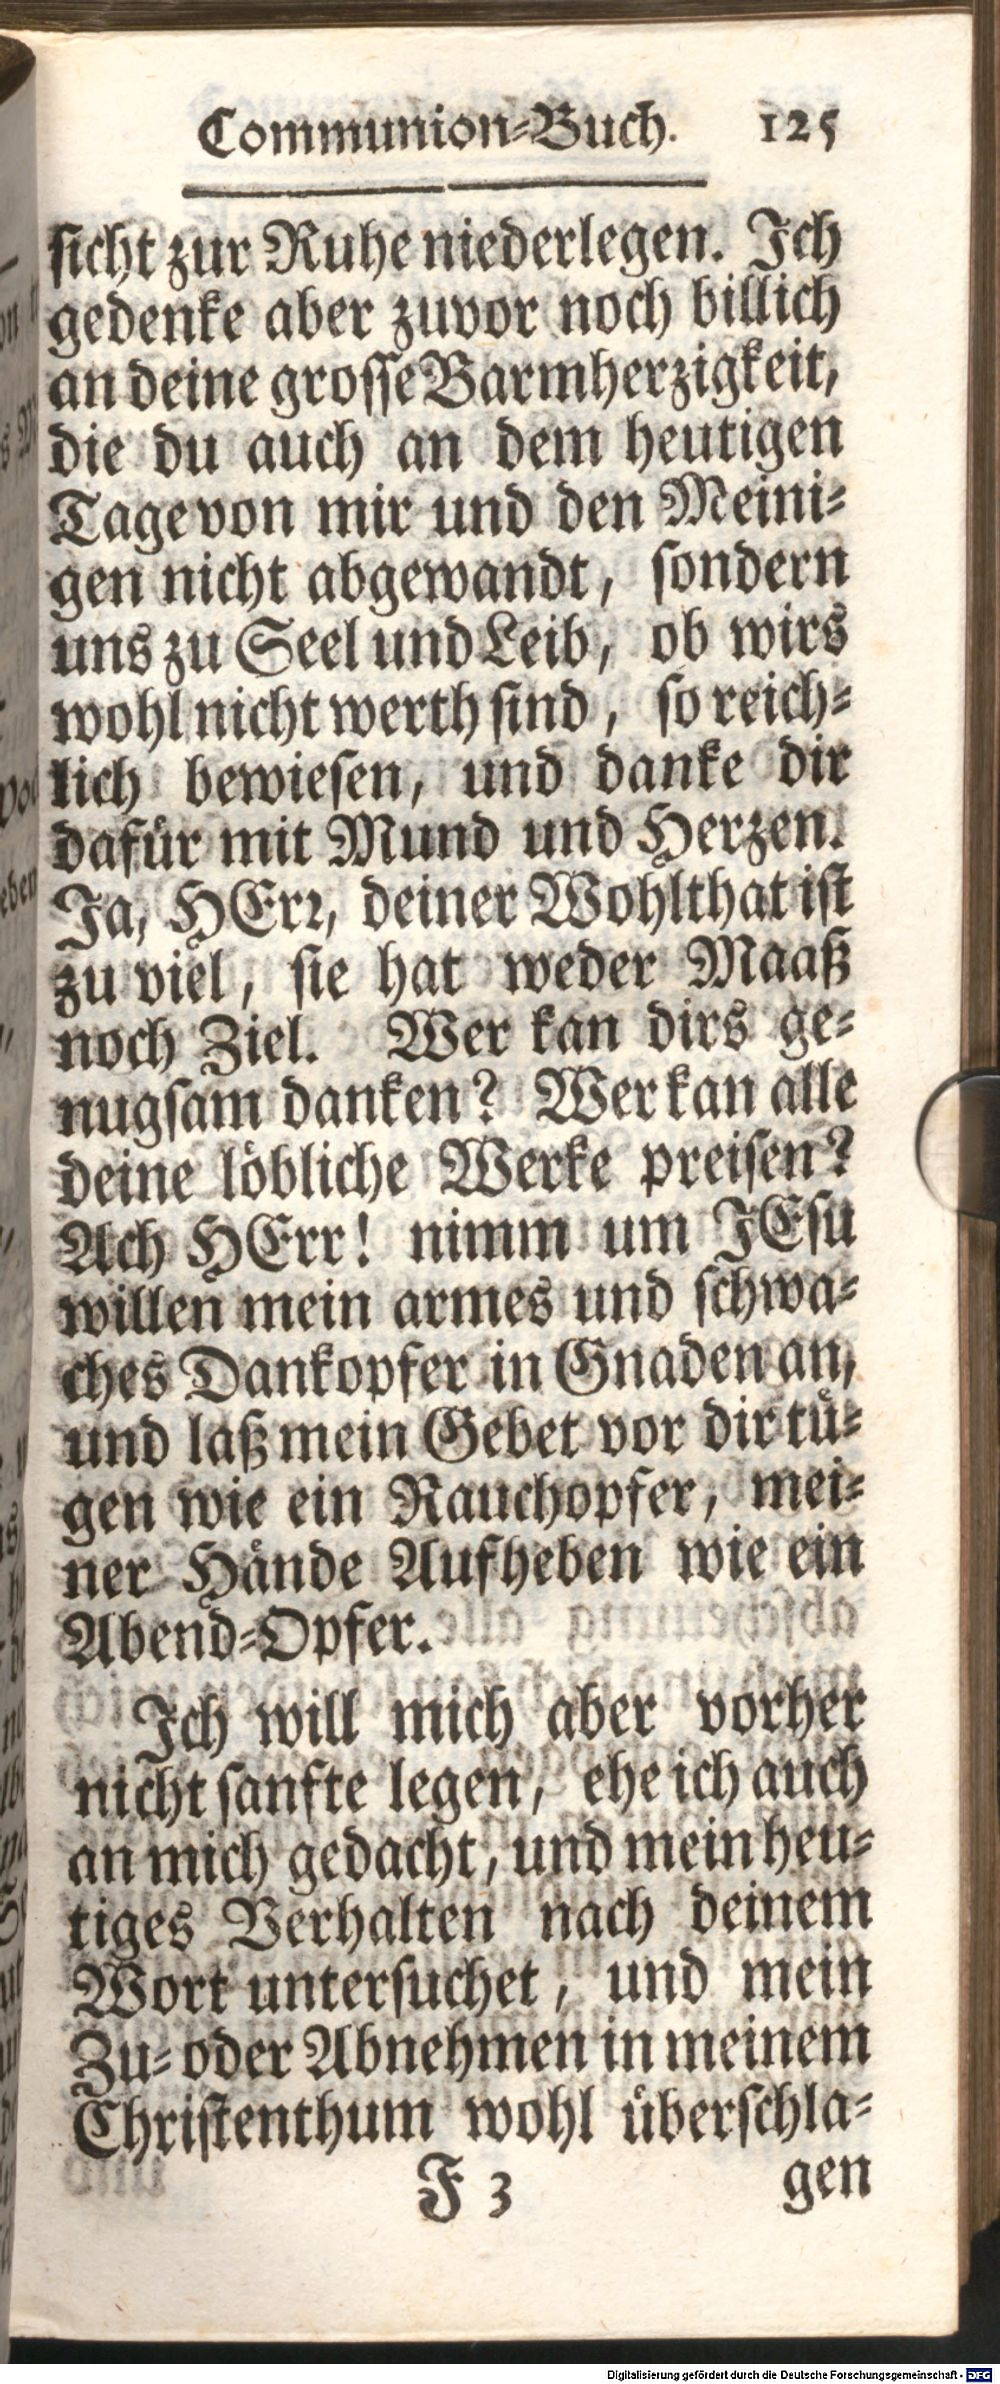 Communion-Buch. 125
sicht zur Ruhe niederlegen. Ich
gedenke aber zuvor noch billich
an deine grosse Barmherzigkeit,
die du auch an dem heutigen
Tage von mir und den Meini-
gen nicht abgewandt, sondern
uns zu Seel und Leib, ob wirs
wohl nicht werth sind, so reich-
lich bewiesen, und danke dir
dafür mit Mund und Herzen.
Ja, HErr, deiner Wohlthat ist
zu viel, sie hat weder Maaß
noch Ziel. Wer kan dirs ge-
nugsam danken? Wer kan alle
deine löbliche Werke preisen?
Ach HErr! nimm um JEsu
willen mein armes und schwa-
ches Dankopfer in Gnaden an,
und laß mein Gebet vor dir tü-
gen wie ein Rauchopfer, mei-
ner Hände Aufheben wie ein
Abend-Opfer.
Ich will mich aber vorher
nicht sanfte legen, ehe ich auch
an mich gedacht, und mein heu-
tiges Verhalten nach deinem
Wort untersuchet, und mein
Zu- oder Abnehmen in meinem
Christenthum wohl überschla-
F 3 gen
Digitalisierung gefördert durch die Deutsche Forschungsgemeinschaft - DFG